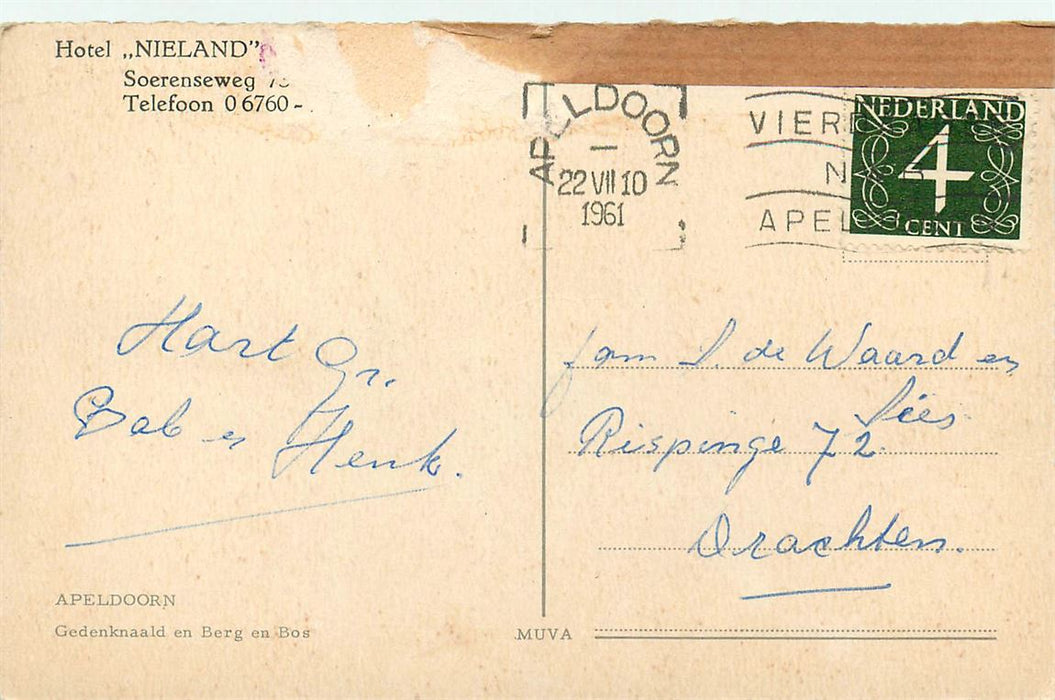 Hotel „NIELAND”
Soerenseweg
Telefoon 0 6760 -
APELDOORN
22 VII 10
1961
VIER
N
APEL
NEDERLAND
4
CENT
Hart Gr.
Bab en Henk.
fam S. de Waard en
Sies
Rispinge 72.
Drachten.
APELDOORN
Gedenknaald en Berg en Bos
MUVA